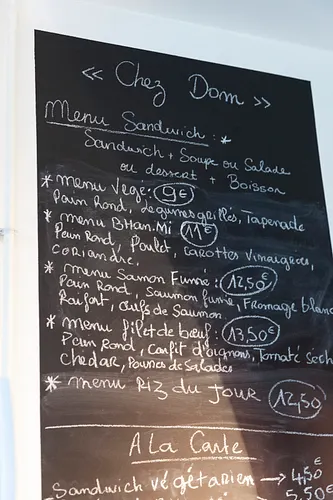 « Chez Dom »
Menu Sandwich : *
Sandwich + Soupe ou Salade
ou dessert + Boisson
* menu Vege : 9€
Pain Rond, légumes grillés, Tapenade
* menu BHan.Mi 11€
Pain Rond, Poulet, carottes Vinaigrées,
coriandre,
* menu Saumon Fumé : 12,50€
Pain Rond, Saumon fumé, Fromage blanc
Raifort, œufs de Saumon
* Menu filet de bœuf : 13,50€
Pain Rond, Confit d'oignons, Tomate Sech
chedar, Pousses de Salades
* menu Riz du Jour 12,50
A La Carte
Sandwich végétarien → 4,50
5,50€